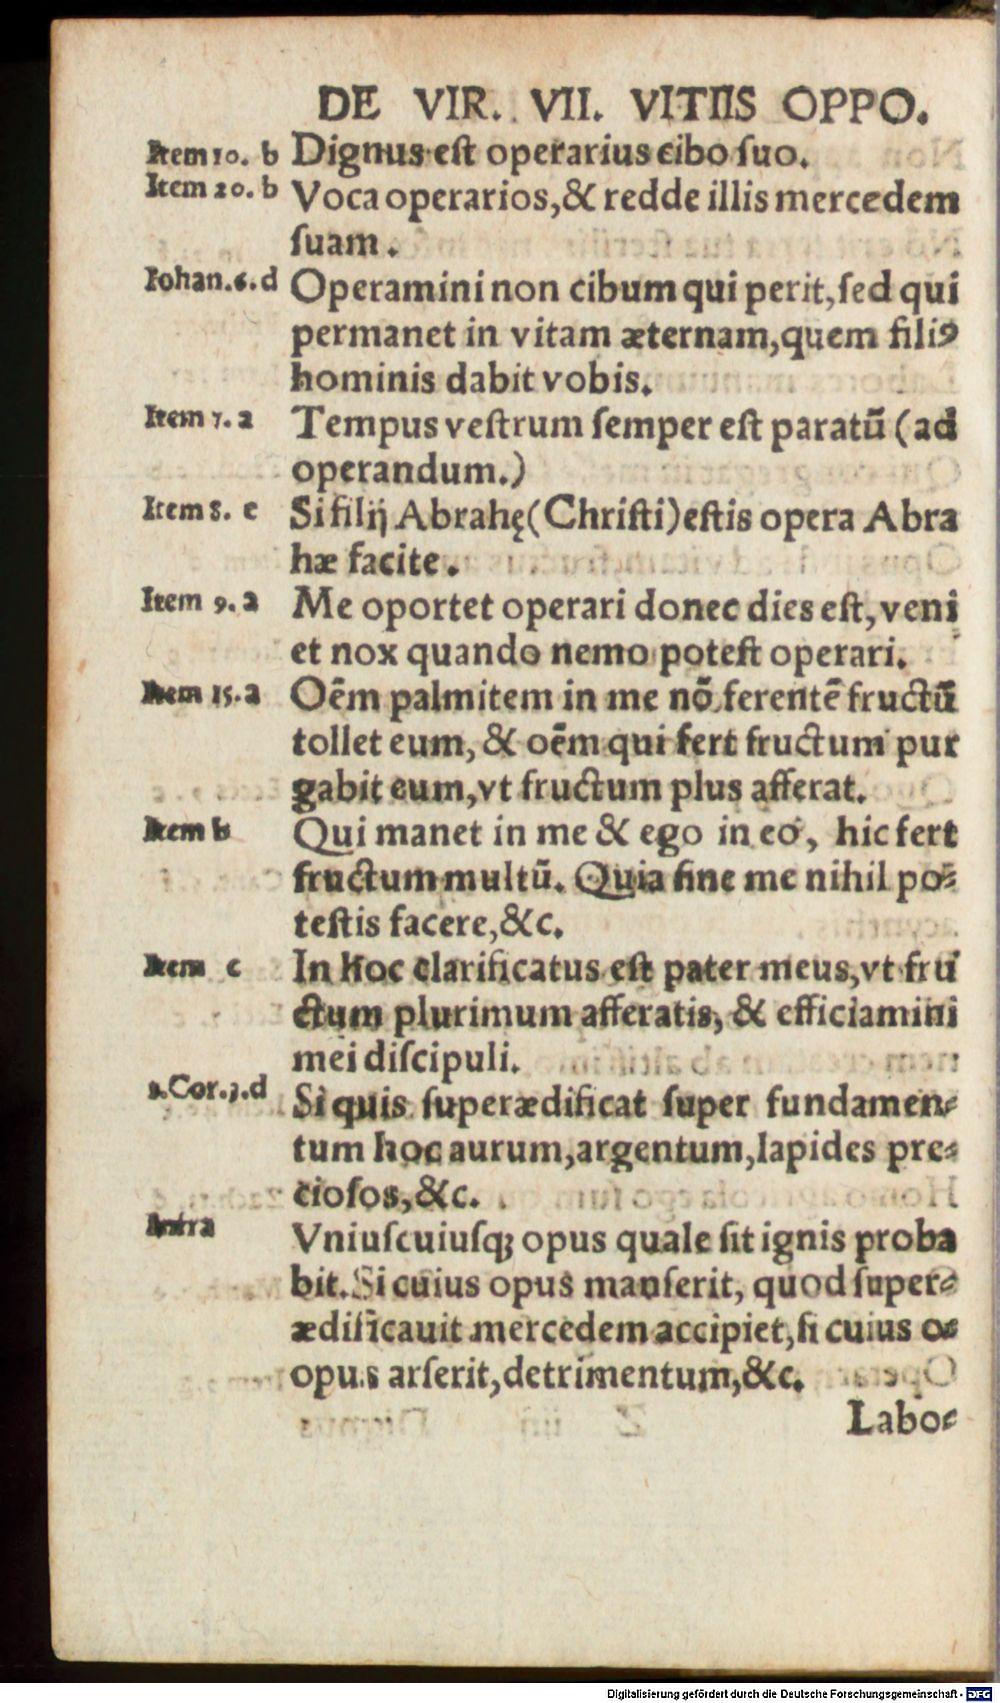 DE VIR. VII. VITIIS OPPO.
Item 10. b Dignus est operarius cibo suo.
Item 20. b Voca operarios, & redde illis mercedem
suam.
Iohan. 6. d Operamini non cibum qui perit, sed qui
permanet in vitam æternam, quem filiꝰ
hominis dabit vobis.
Item 7. a Tempus vestrum semper est paratū (ad
operandum.)
Item 8. e Si filij Abrahę (Christi) estis opera Abra
hæ facite.
Item 9. a Me oportet operari donec dies est, veni
et nox quando nemo potest operari.
Item 15. a Oēm palmitem in me nō ferentē fructū
tollet eum, & oēm qui fert fructum pur
gabit eum, vt fructum plus afferat.
Item b Qui manet in me & ego in eo, hic fert
fructum multū. Quia sine me nihil po-
testis facere, &c.
Item c In hoc clarificatus est pater meus, vt fru
ctum plurimum afferatis, & efficiamini
mei discipuli.
1. Cor. 3. d Si quis superædificat super fundamen-
tum hoc aurum, argentum, lapides pre-
ciosos, &c.
Intra Vniuscuiusq; opus quale sit ignis proba
bit. Si cuius opus manserit, quod super-
ædificauit mercedem accipiet, si cuius o-
opus arserit, detrimentum, &c.
Labo-
Digitalisierung gefördert durch die Deutsche Forschungsgemeinschaft - DFG